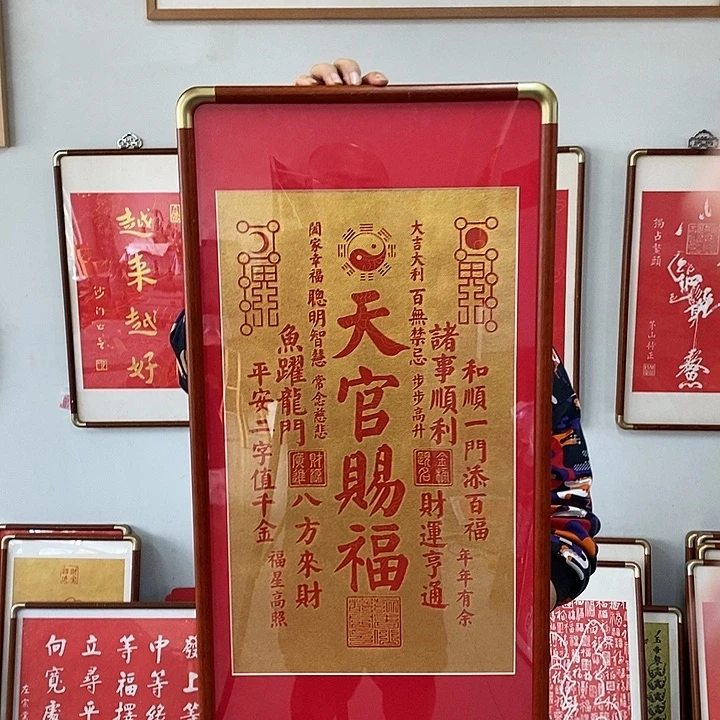 天官賜福
大吉大利 百無禁忌 步步高升
諸事順利
財運亨通
金榜題名
和順一門添百福
年年有余
闔家幸福 聰明智慧 常念慈悲
魚躍龍門
財源廣進
八方來財
平安二字值千金
福星高照
越来越好
獨占鰲頭
發上等
中等緣
等福擇
立尋平
向寬處